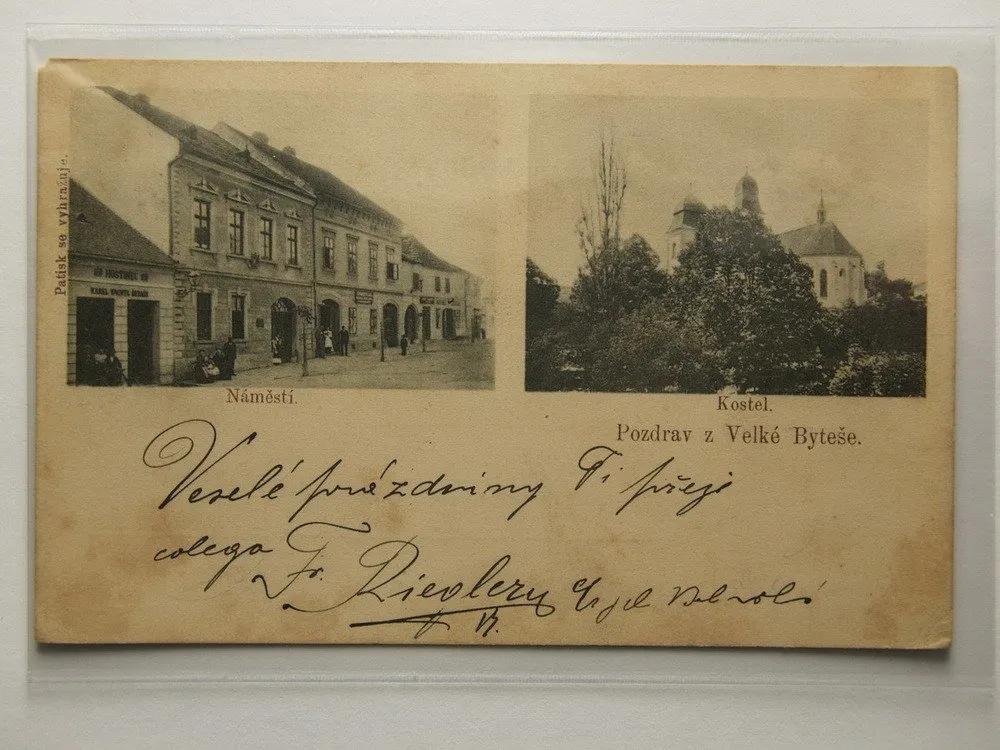 Patisk se vyhražuje.
HOSTINEC
Náměstí.
Kostel.
Pozdrav z Velké Byteše.
Veselé prázdniny Ti přeje
colega Fr. Riegler